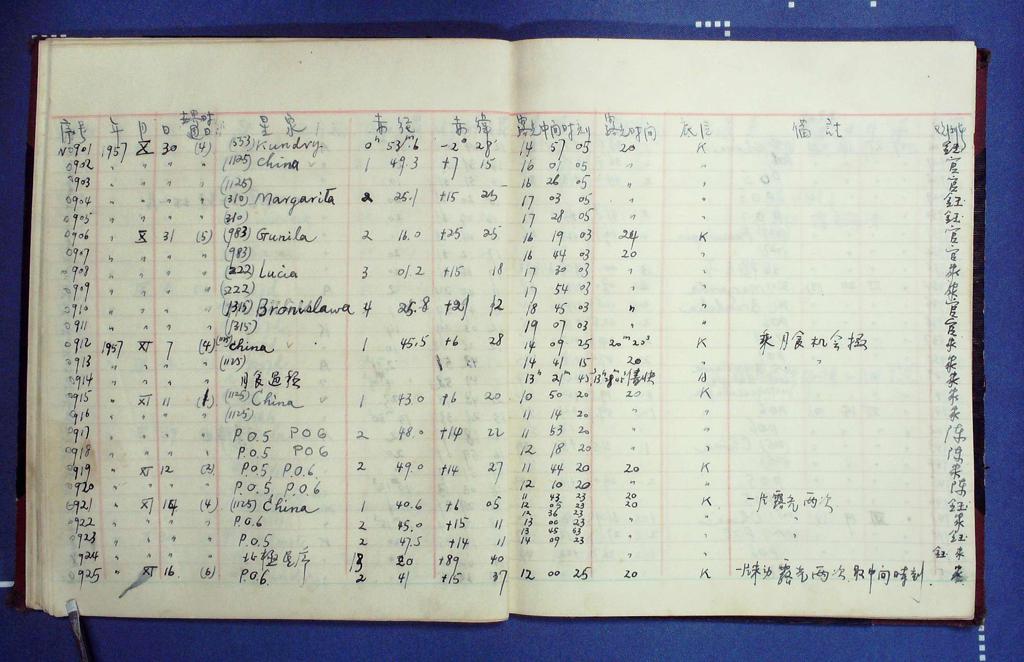 序号 年 月 日 星象 赤经 赤纬 露光中间时刻 露光时间 底片 備註
N°901 1957 X 30 (4) (553) Kundry 0ʰ 53ᵐ.6 -2° 28' 14 57 05 20 K 鈺
0902 " " " " (1125) China 1 49.3 +7 15 16 01 05 " " 宫
0903 " " " " (1125) 16 26 05 " " 宫
0904 " " " " (310) Margarita 2 25.1 +15 25 17 03 05 " " 鈺
0905 " " " " (310) 17 28 05 " " 鈺
0906 " X 31 (5) (983) Gunila 2 16.0 +25 25 16 19 03 24 K 宫
0907 " " " " (983) 16 44 03 20 " 宫
0908 " " " " (222) Lucia 3 01.2 +15 18 17 30 03 " "
0909 " " " " (222) 17 54 03 " "
0910 " " " " (1315) Bronislawa 4 25.8 +21 12 18 45 03 " " 宫
0911 " " " " (1315) 19 07 03 " " 宫
0912 1957 XI 7 (4) (1125) China 1 45.5 +6 28 14 09 25 20ᵐ 20ˢ K 乘月食机会摄
0913 " " " " (1125) 14 41 15 20 " "
0914 " " " " 月食過程 13ʰ 21ᵐ 45ˢ
0915 " XI 11 (1) (1125) China 1 43.0 +6 20 10 50 20 20 K
0916 " " " " (1125) 11 14 20 " "
0917 " " " " P.O.5 PO6 2 48.0 +14 22 11 53 20 " " 陈
0918 " " " " P.O.5 PO6 12 18 20 " " 陈
0919 " XI 12 (2) P.O.5, P.O.6 2 49.0 +14 27 11 44 20 20 K
0920 " " " " P.O.5, P.O.6 12 10 20 " " 陈
0921 " XI 14 (4) (1125) China 1 40.6 +6 05 11 43 23 20 K 一片露光两次 鈺
12 05 23 20
0922 " " " " P.O.6 2 45.0 +15 11 12 36 23 " " "
13 00 23
0923 " " " " P.O.5 2 47.5 +14 11 13 45 23 " " " 鈺
14 09 23
0924 " " " " 北極星序 13 20 +89 40 " " 鈺
0925 " XI 16 (6) PO6 2 41 +15 37 12 00 25 20 K 露光两次, 取中间時刻.